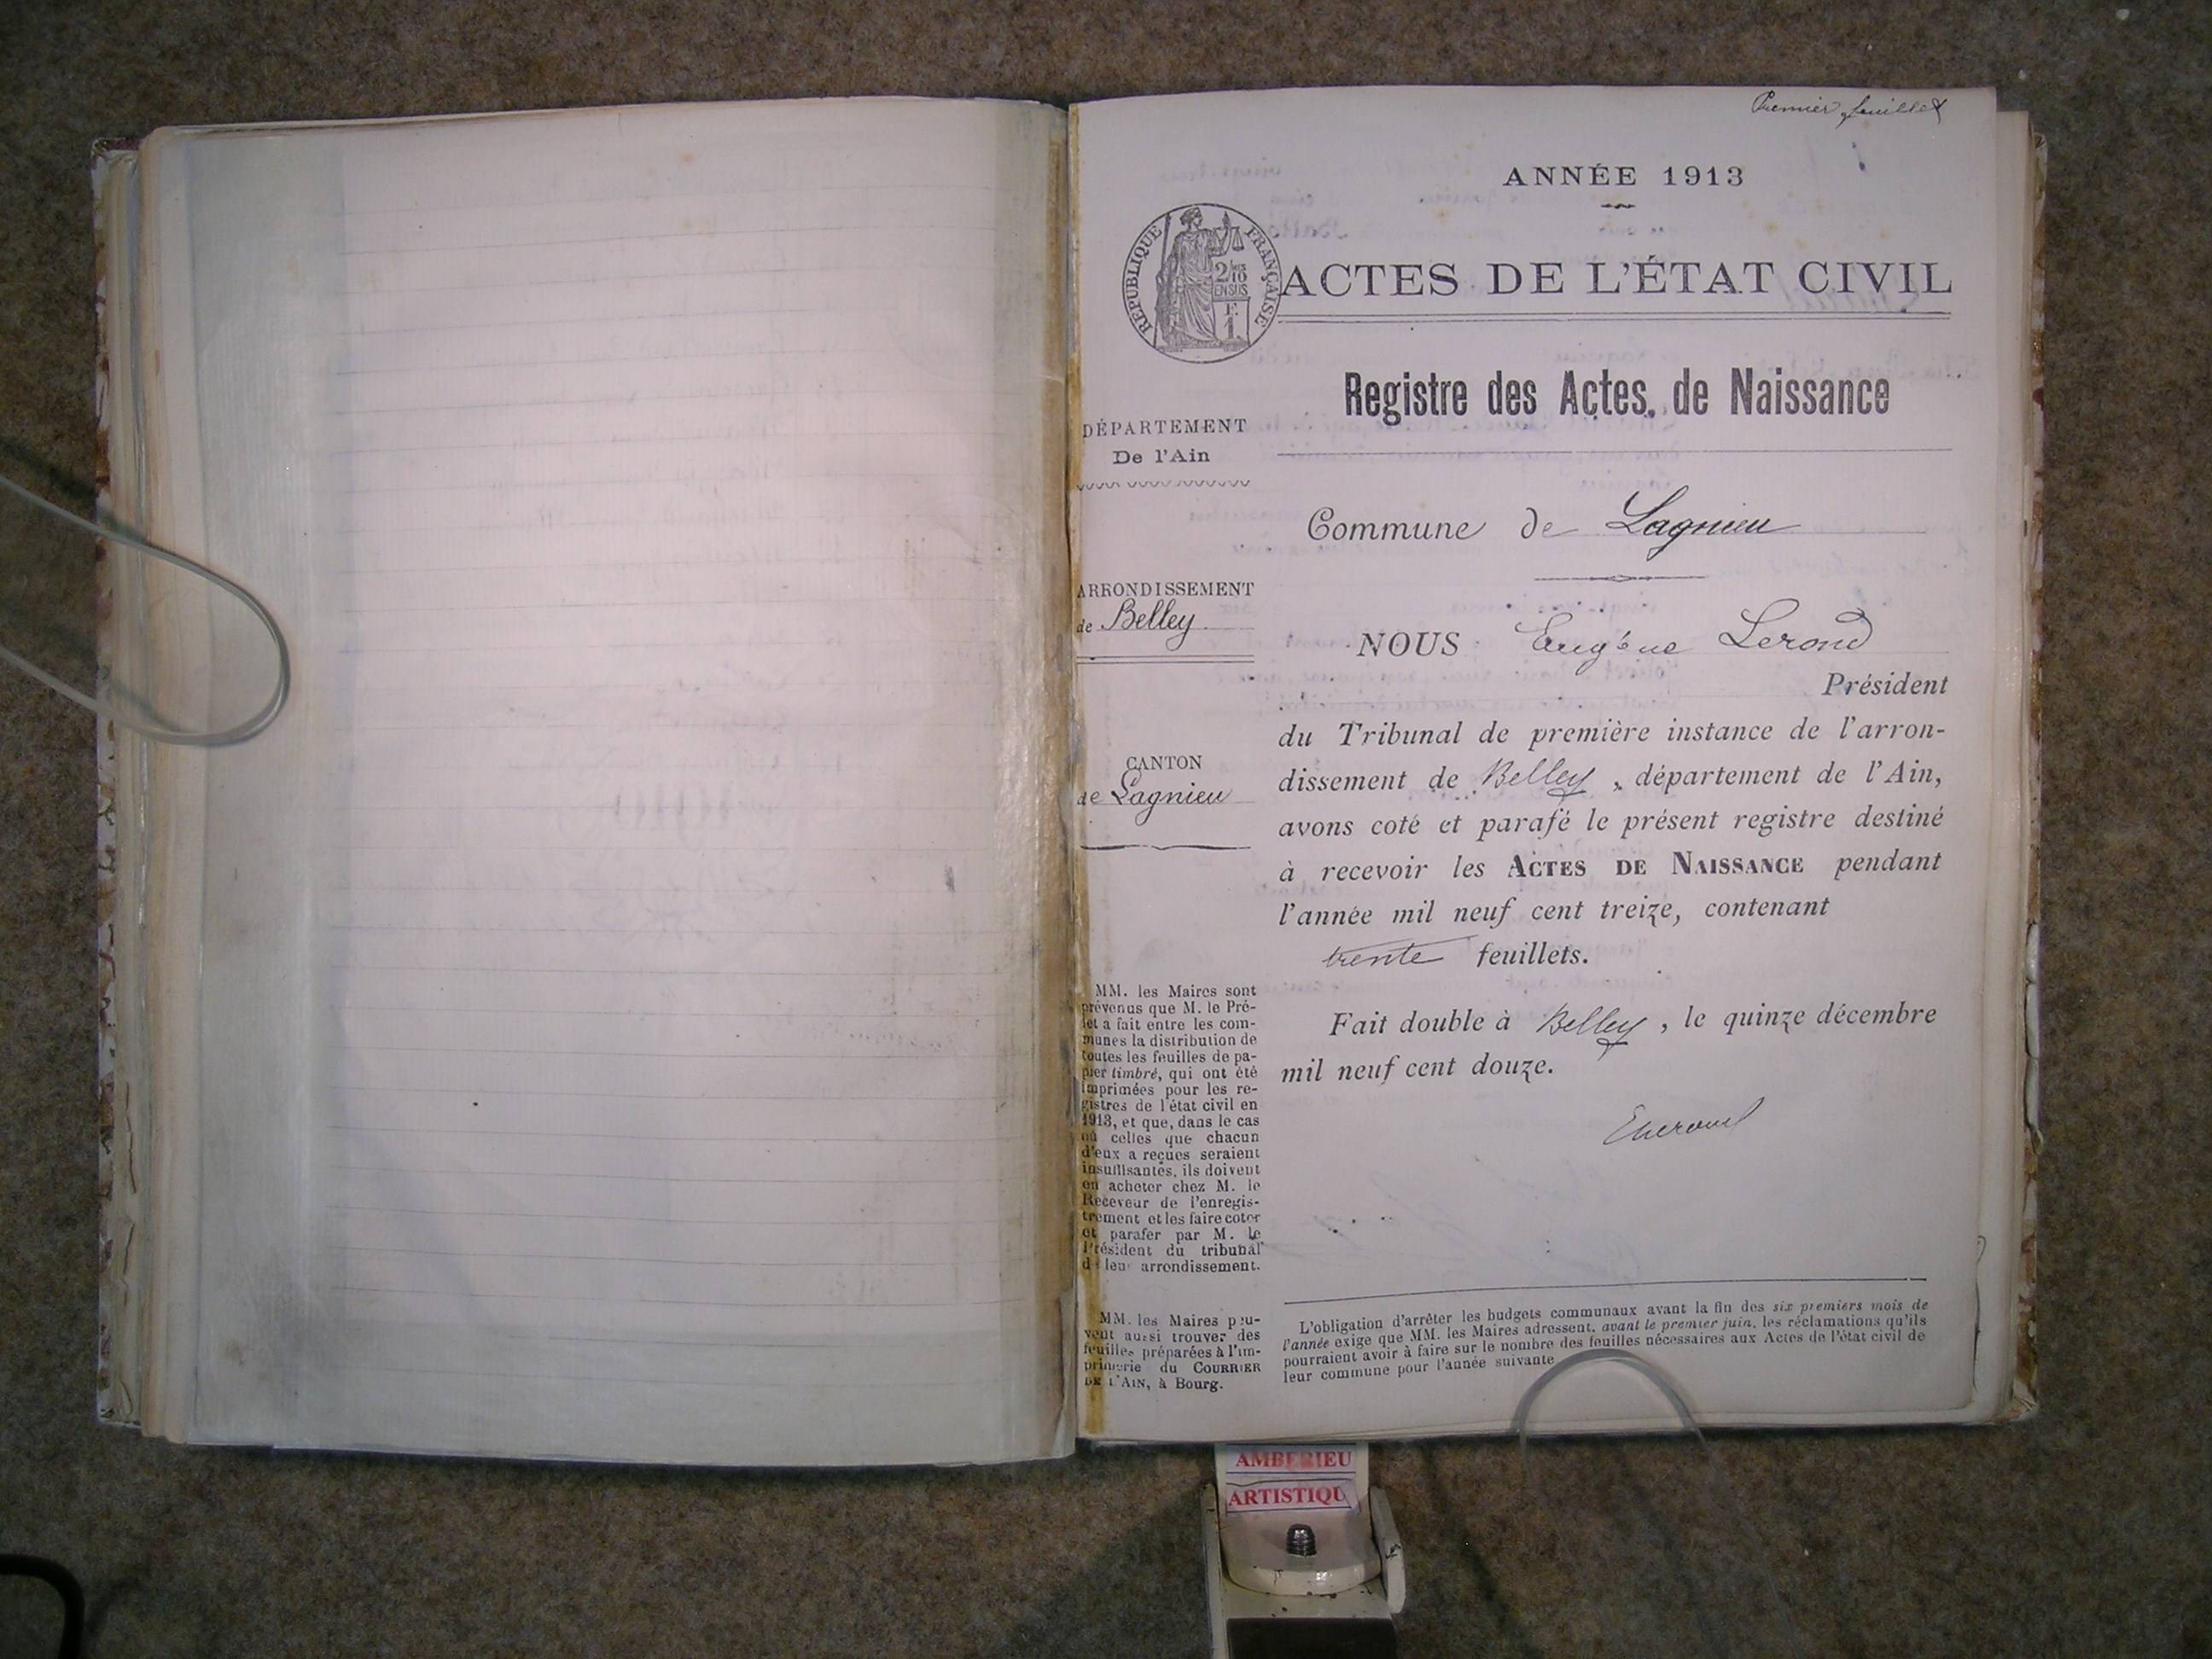 Premier feuillet
ANNÉE 1913
RÉPUBLIQUE FRANÇAISE
2/10
EN SUS
F.
1.
ACTES DE L'ÉTAT CIVIL
Registre des Actes de Naissance
DÉPARTEMENT
De l'Ain
Commune de Lagnieu
ARRONDISSEMENT
de Belley
CANTON
de Lagnieu
NOUS Eugène Lerond
Président
du Tribunal de première instance de l'arron-
dissement de Belley, département de l'Ain,
avons coté et parafé le présent registre destiné
à recevoir les ACTES DE NAISSANCE pendant
l'année mil neuf cent treize, contenant
trente feuillets.
Fait double à Belley, le quinze décembre
mil neuf cent douze.
MM. les Maires sont
prévenus que M. le Pré-
fet a fait entre les com-
munes la distribution de
toutes les feuilles de pa-
pier timbré, qui ont été
imprimées pour les re-
gistres de l'état civil en
1913, et que, dans le cas
où celles que chacun
d'eux a reçues seraient
insuffisantes, ils doivent
en acheter chez M. le
Receveur de l'enregis-
trement et les faire coter
et parafer par M. le
Président du tribunal
de leur arrondissement.
MM. les Maires peu-
vent aussi trouver des
feuilles préparées à l'im-
primerie du COURRIER
DE L'AIN, à Bourg.
L'obligation d'arrêter les budgets communaux avant la fin des six premiers mois de
l'année exige que MM. les Maires adressent, avant le premier juin, les réclamations qu'ils
pourraient avoir à faire sur le nombre des feuilles nécessaires aux Actes de l'état civil de
leur commune pour l'année suivante
AMBERIEU
ARTISTIQU